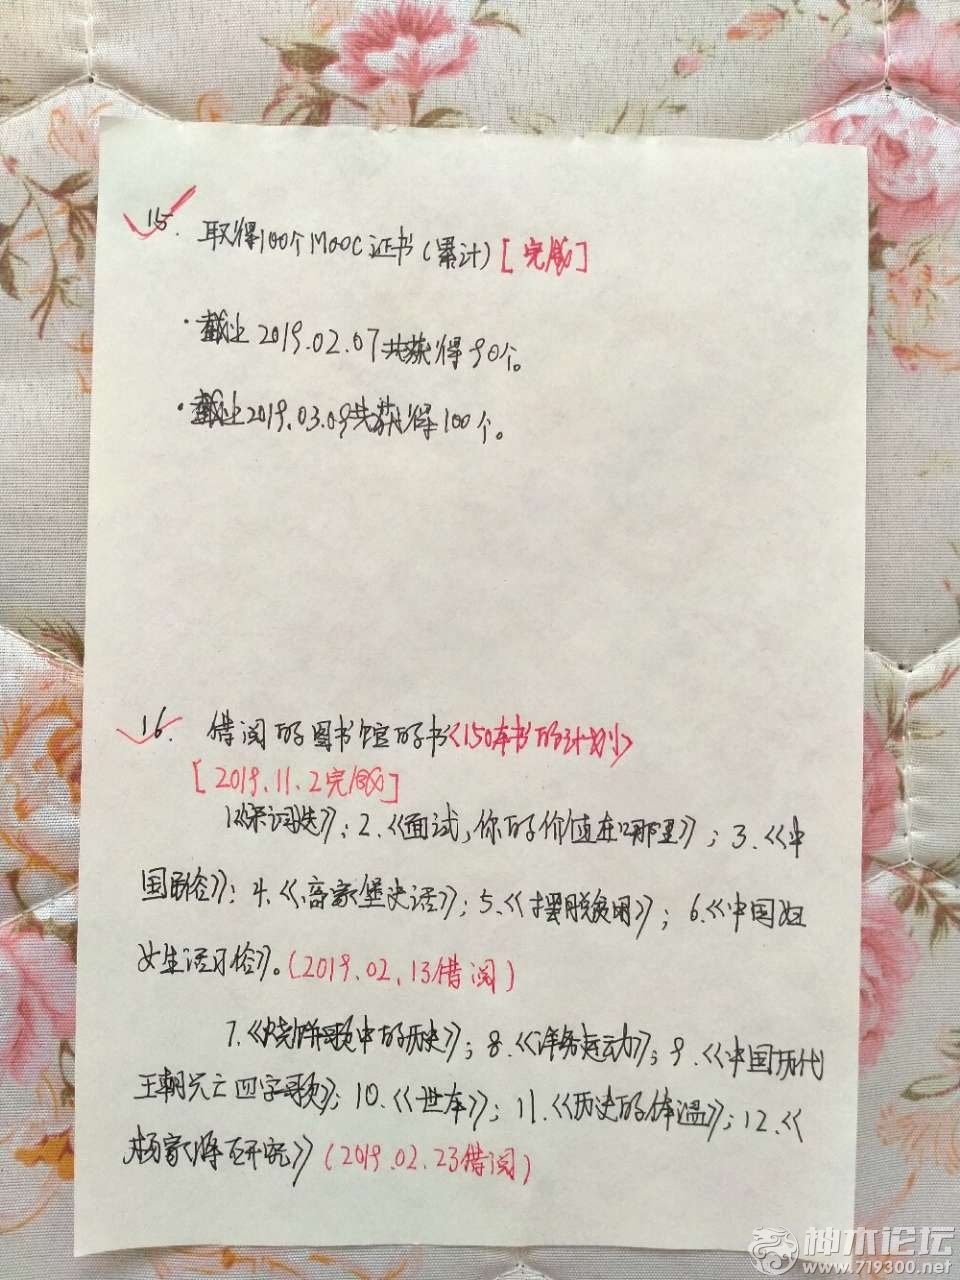 15. 取得100个MOOC证书(累计)[完成]
·截止2019.02.07共获得90个。
·截止2019.03.09共获得100个。
16. 借阅的图书馆的书<150本书的计划>
[2019.11.2完成]
1.《宋词选》;2.《面试,你的价值在哪里》;3.《中
国俗》;4.《高家堡史话》;5.《摆脱贫困》;6.《中国妇
女生活习俗》。(2019.02.13借阅)
7.《烧饼歌中的历史》;8.《洋务运动》;9.《中国历代
王朝兴亡四字歌》;10.《世本》;11.《历史的体温》;12.《
杨家将研究》(2019.02.23借阅)
神木论坛
www.719300.net